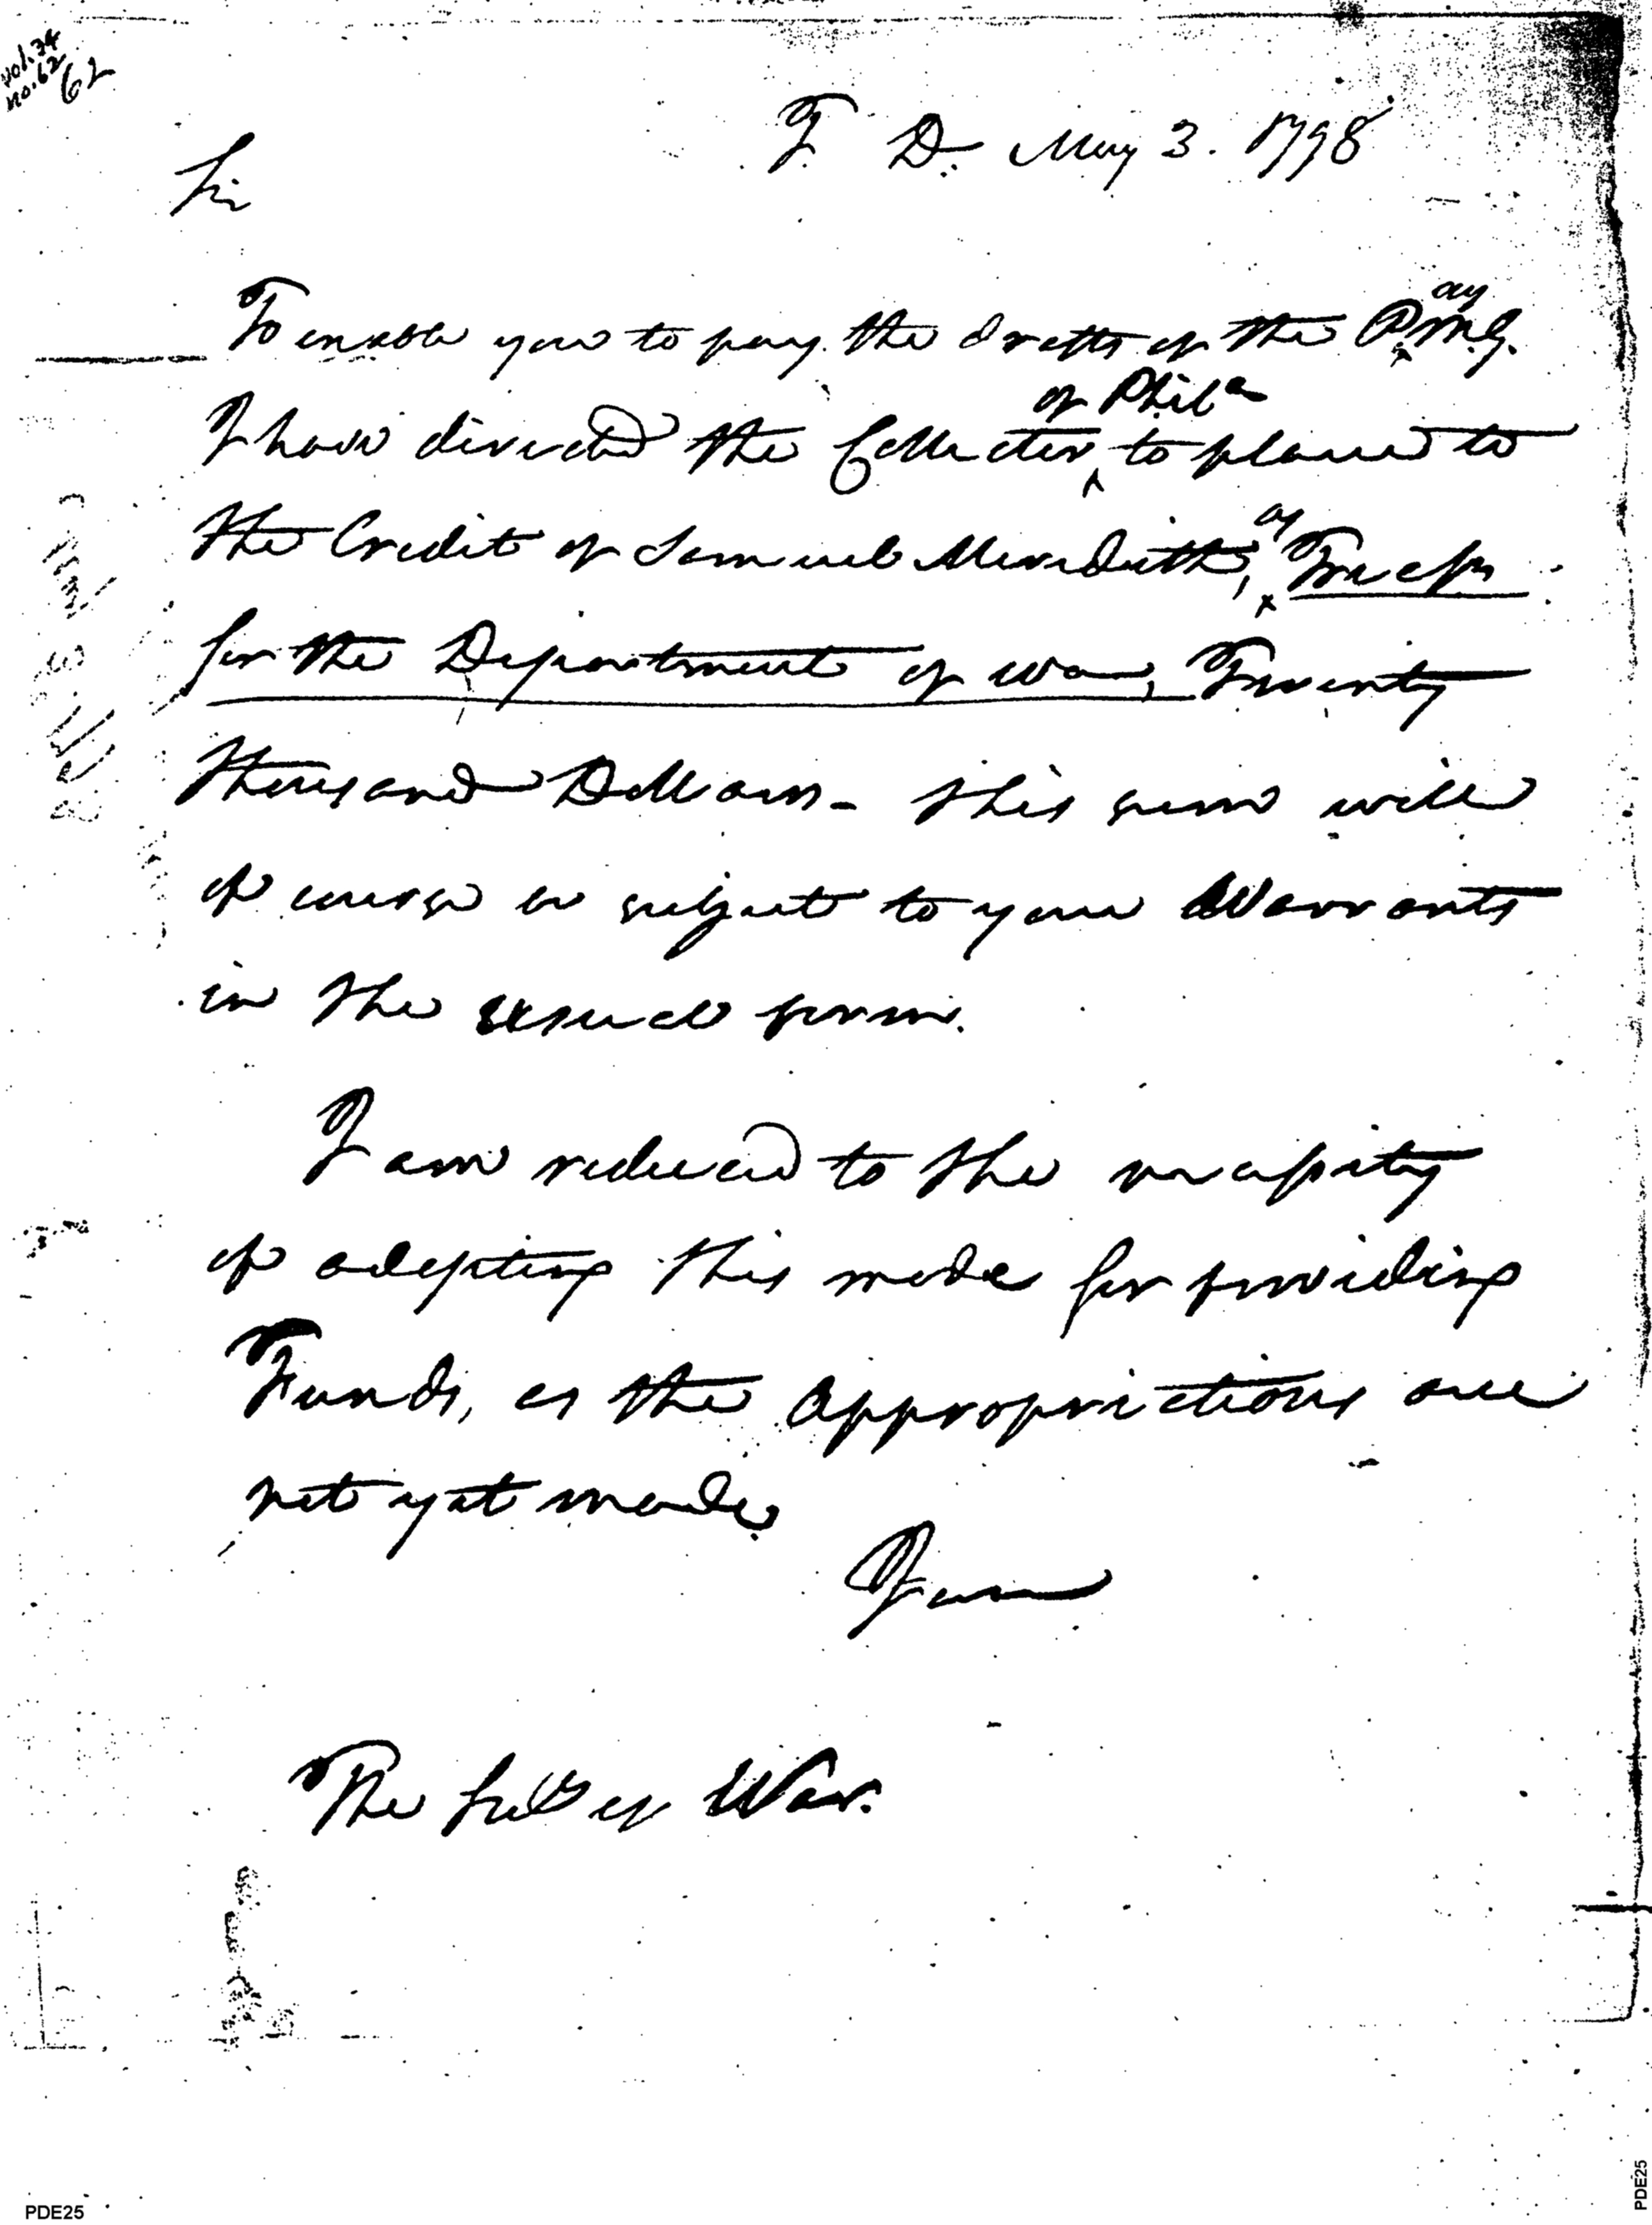 vol. 34
no. 62
62
T. D. May 3. 1798
Sir
To enable you to pay the drafts of the P^ay M. G.
of Phil^a
I have directed the Collector ^ to place to
the Credit of Samuel Meredith, ^as Treasr
for the Department of War, Twenty
thousand Dollars - this sum will
of course be subject to your Warrants
in the usual form.
I am reduced to the necessity
of adopting this mode for providing
Funds, as the appropriations are
not yet made.
I am
The Secty of War.
PDE25
PDE25